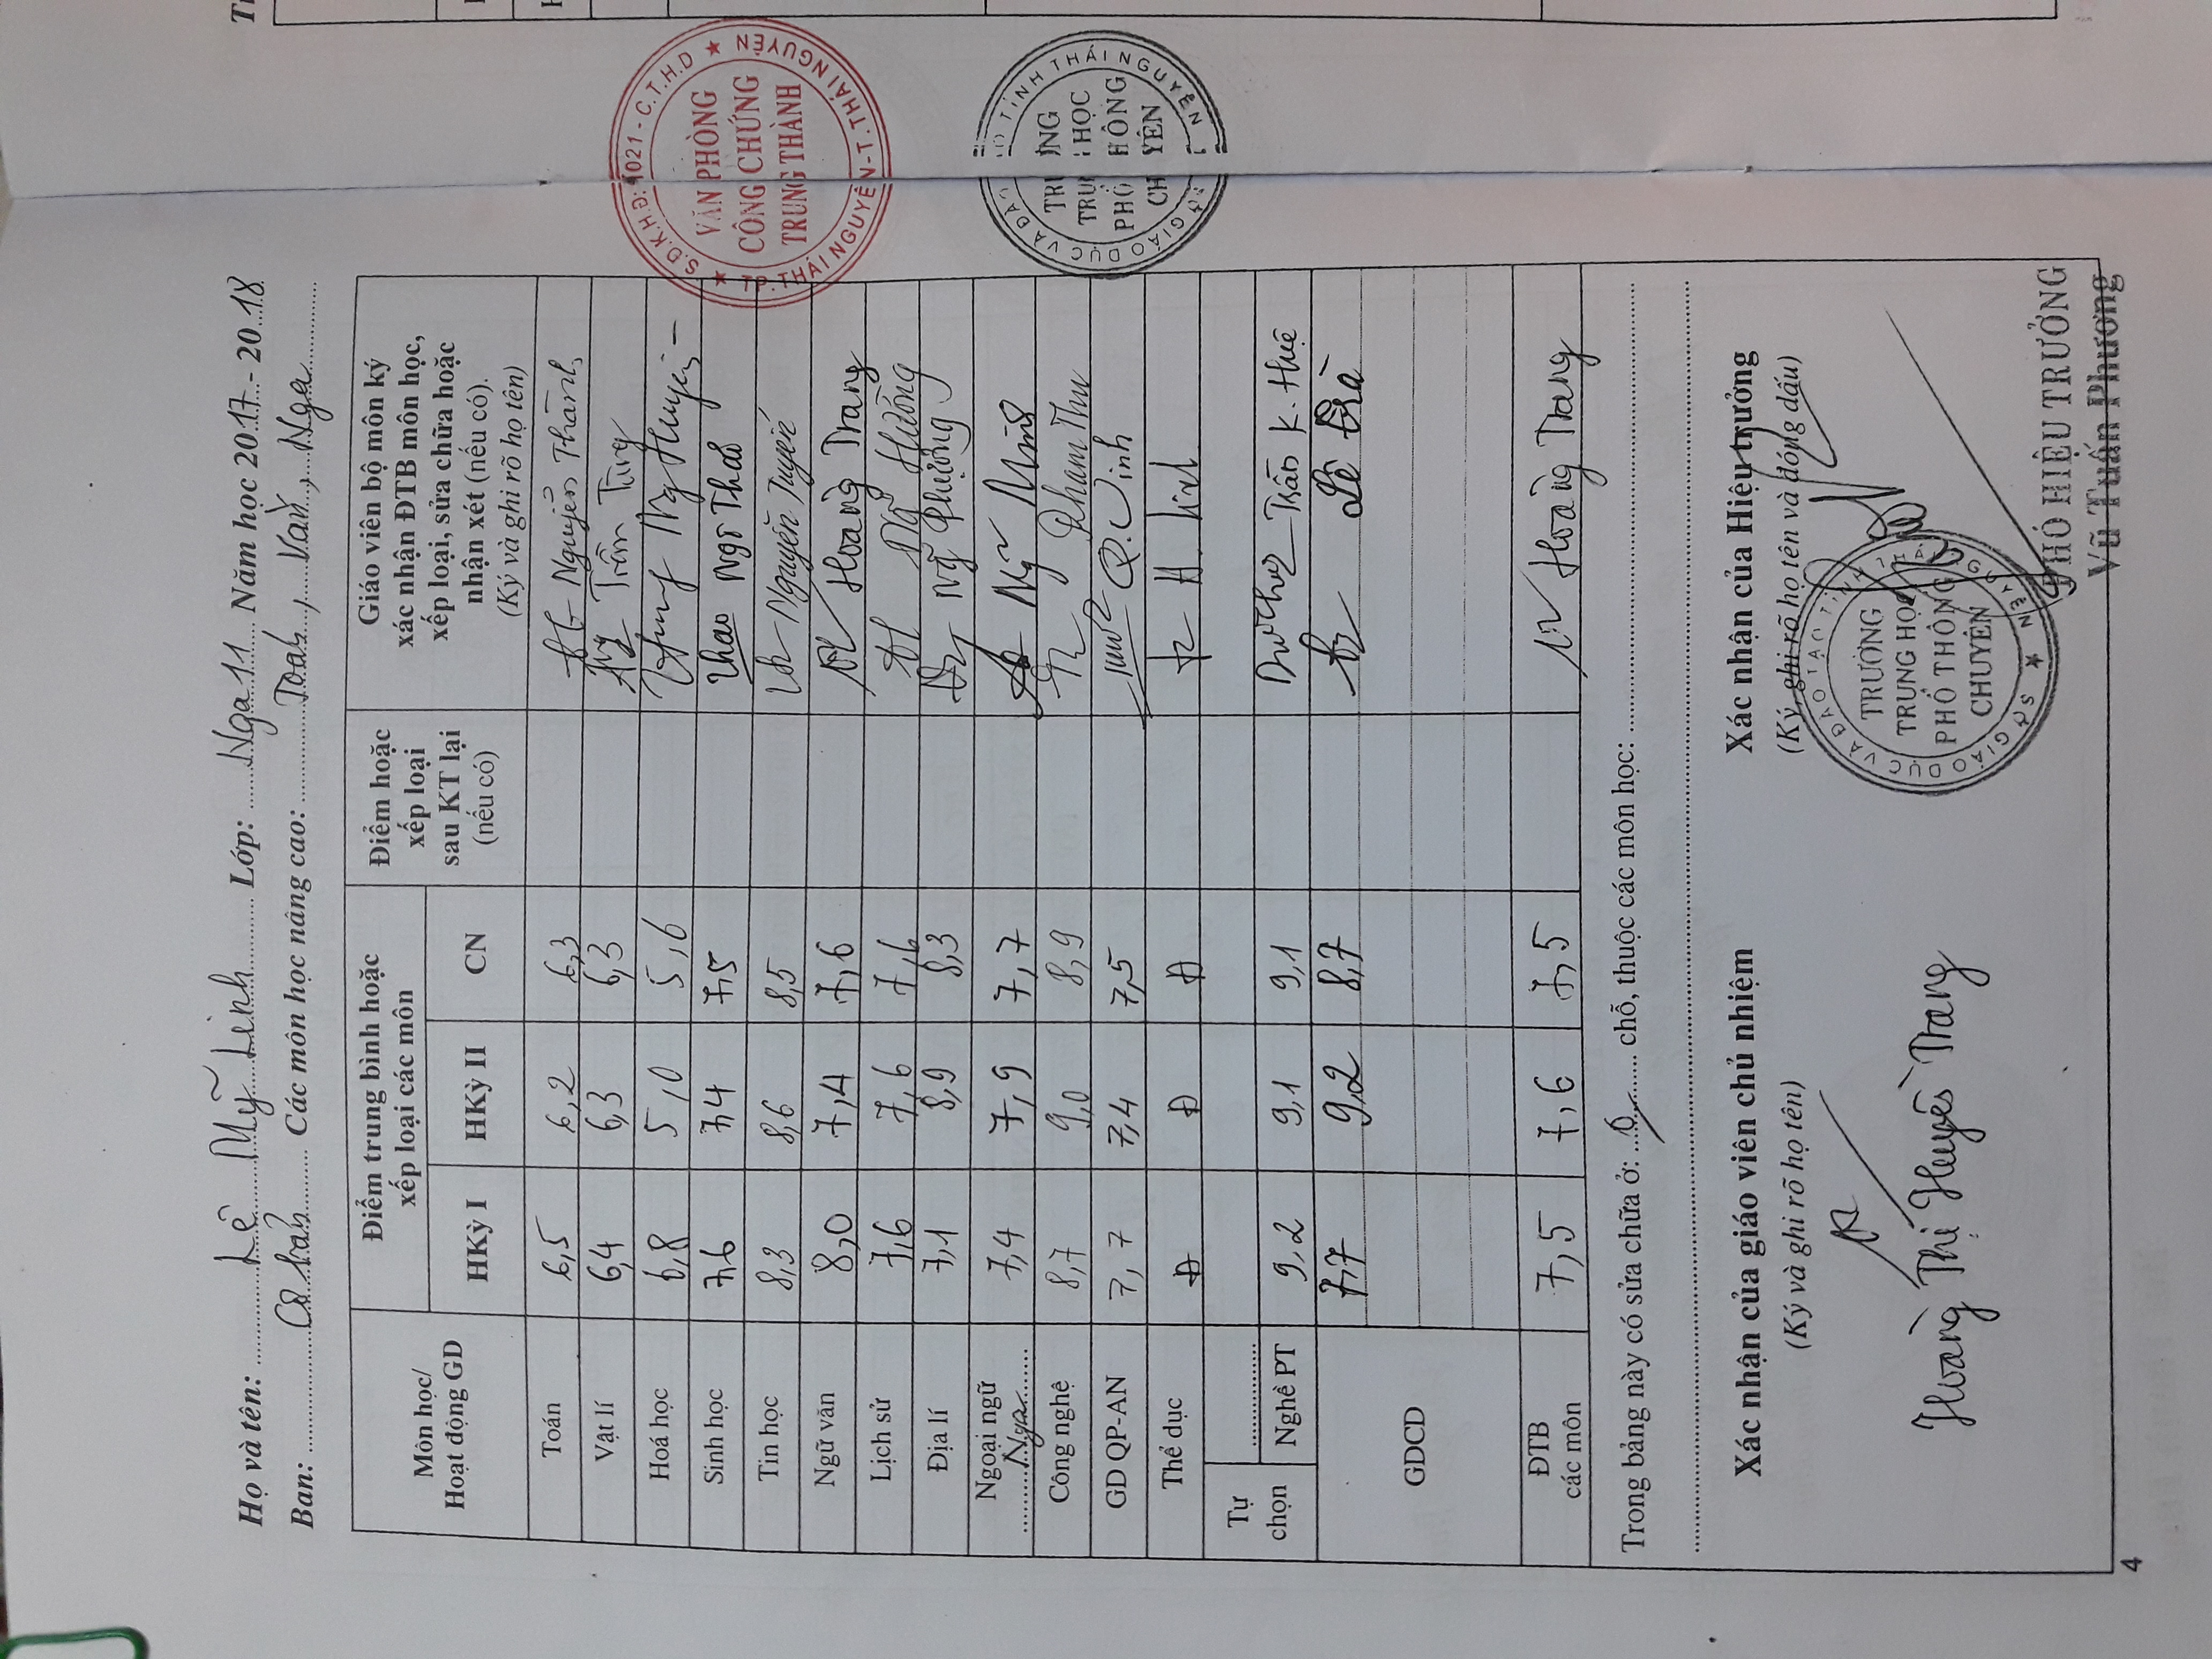 Họ và tên: Lê Mỹ Linh Lớp: Nga 11 Năm học 2017 - 2018
Ban: Cơ bản Các môn học nâng cao: Toán, Văn, Nga
Môn học/ Hoạt động GD
Điểm trung bình hoặc xếp loại các môn
HKỳ I HKỳ II CN
Điểm hoặc xếp loại sau KT lại (nếu có)
Giáo viên bộ môn ký xác nhận ĐTB môn học, xếp loại, sửa chữa hoặc nhận xét (nếu có). (Ký và ghi rõ họ tên)
Toán 6,5 6,2 6,3 Nguyễn Thành
Vật lí 6,4 6,3 6,3 Trần Tùng
Hoá học 6,8 5,0 5,6 Ng Huyền
Sinh học 7,6 7,4 7,5 Thao Ngô Thảo
Tin học 8,3 8,6 8,5 Nguyễn Tuyến
Ngữ văn 8,0 7,4 7,6 Hoàng Trang
Lịch sử 7,6 7,6 7,6 Ng Hường
Địa lí 7,1 8,9 8,3 Ng Phượng
Ngoại ngữ Nga 7,4 7,9 7,7 Ng Minh
Công nghệ 8,7 9,0 8,9 Phạm Thu
GD QP-AN 7,7 7,4 7,5 Q. Vinh
Thể dục Đ Đ Đ
Tự chọn
Nghề PT 9,2 9,1 9,1 Trần K. Huệ
GDCD 7,7 9,2 8,7 Lê Trà
ĐTB các môn 7,5 7,6 7,5 Hoàng Trang
Trong bảng này có sửa chữa ở: 0 chỗ, thuộc các môn học:
Xác nhận của giáo viên chủ nhiệm
(Ký và ghi rõ họ tên)
Hoàng Thị Huyền Trang
Xác nhận của Hiệu trưởng
(Ký, ghi rõ họ tên và đóng dấu)
SỞ GIÁO DỤC VÀ ĐÀO TẠO TỈNH THÁI NGUYÊN
TRƯỜNG
TRUNG HỌC
PHỔ THÔNG
CHUYÊN
PHÓ HIỆU TRƯỞNG
Vũ Tuấn Phương
4
S.Đ.K.H.Đ: 1021 - C.T.H.D
VĂN PHÒNG
CÔNG CHỨNG
TRUNG THÀNH
TP.THÁI NGUYÊN-T.THÁI NGUYÊN
SỞ GIÁO DỤC VÀ ĐÀO TẠO TỈNH THÁI NGUYÊN
TRƯỜNG
TRUNG HỌC
PHỔ THÔNG
CHUYÊN